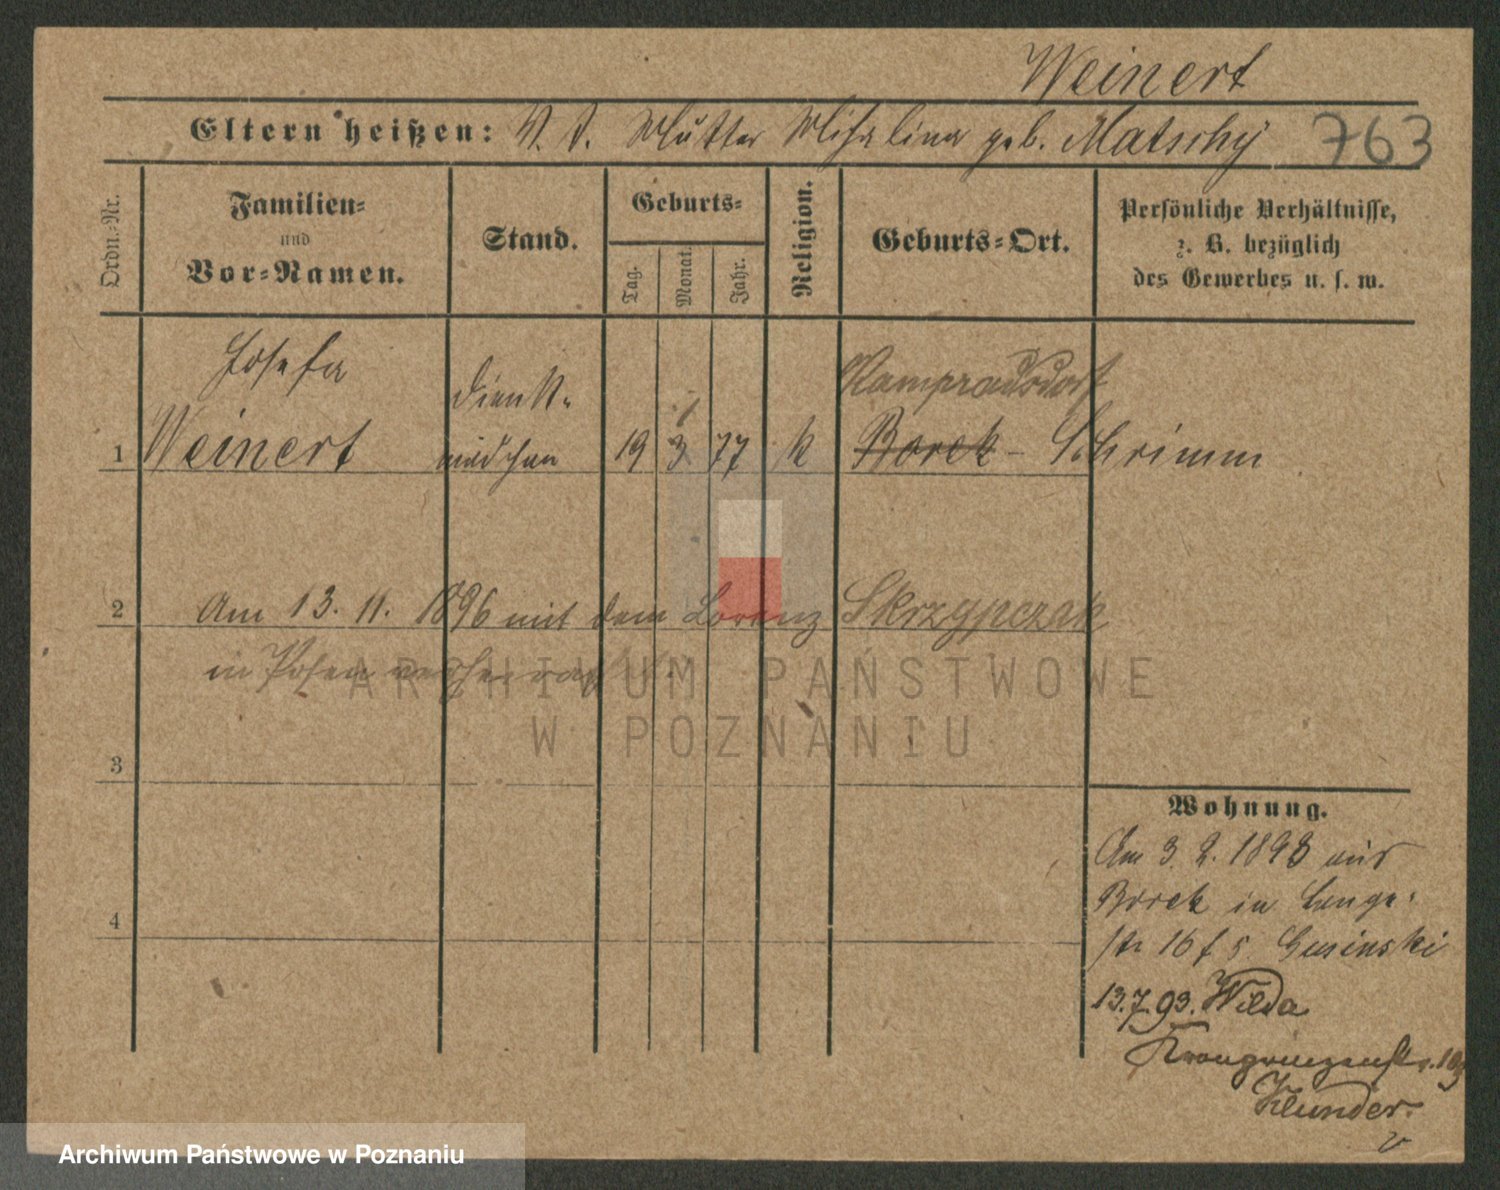 Weinert
Eltern heißen: V. t. Mutter Michalina geb. Matschy 763
Ordn.-Nr.
Familien-
und
Vor-Namen.
Stand.
Geburts-
Tag.
Monat.
Jahr.
Religion.
Geburts-Ort.
Persönliche Verhältnisse,
z. B. bezüglich
des Gewerbes u. s. w.
Josefa
Dienst-
Kampradsdorf
1 Weinert mädchen 19 3 77 k Borek - Schrimm
2 Am 13. 11. 1896 mit dem Lorenz Skrzypczak
in Posen verheirat
ARCHIWUM PAŃSTWOWE
W POZNANIU
3
Wohnung.
Am 3. 2. 1893 aus
Borek in Lange-
4
str 16 f 5.
13.7.93. Wilda
Kronprinzenstr.
Klunder.
Archiwum Państwowe w Poznaniu